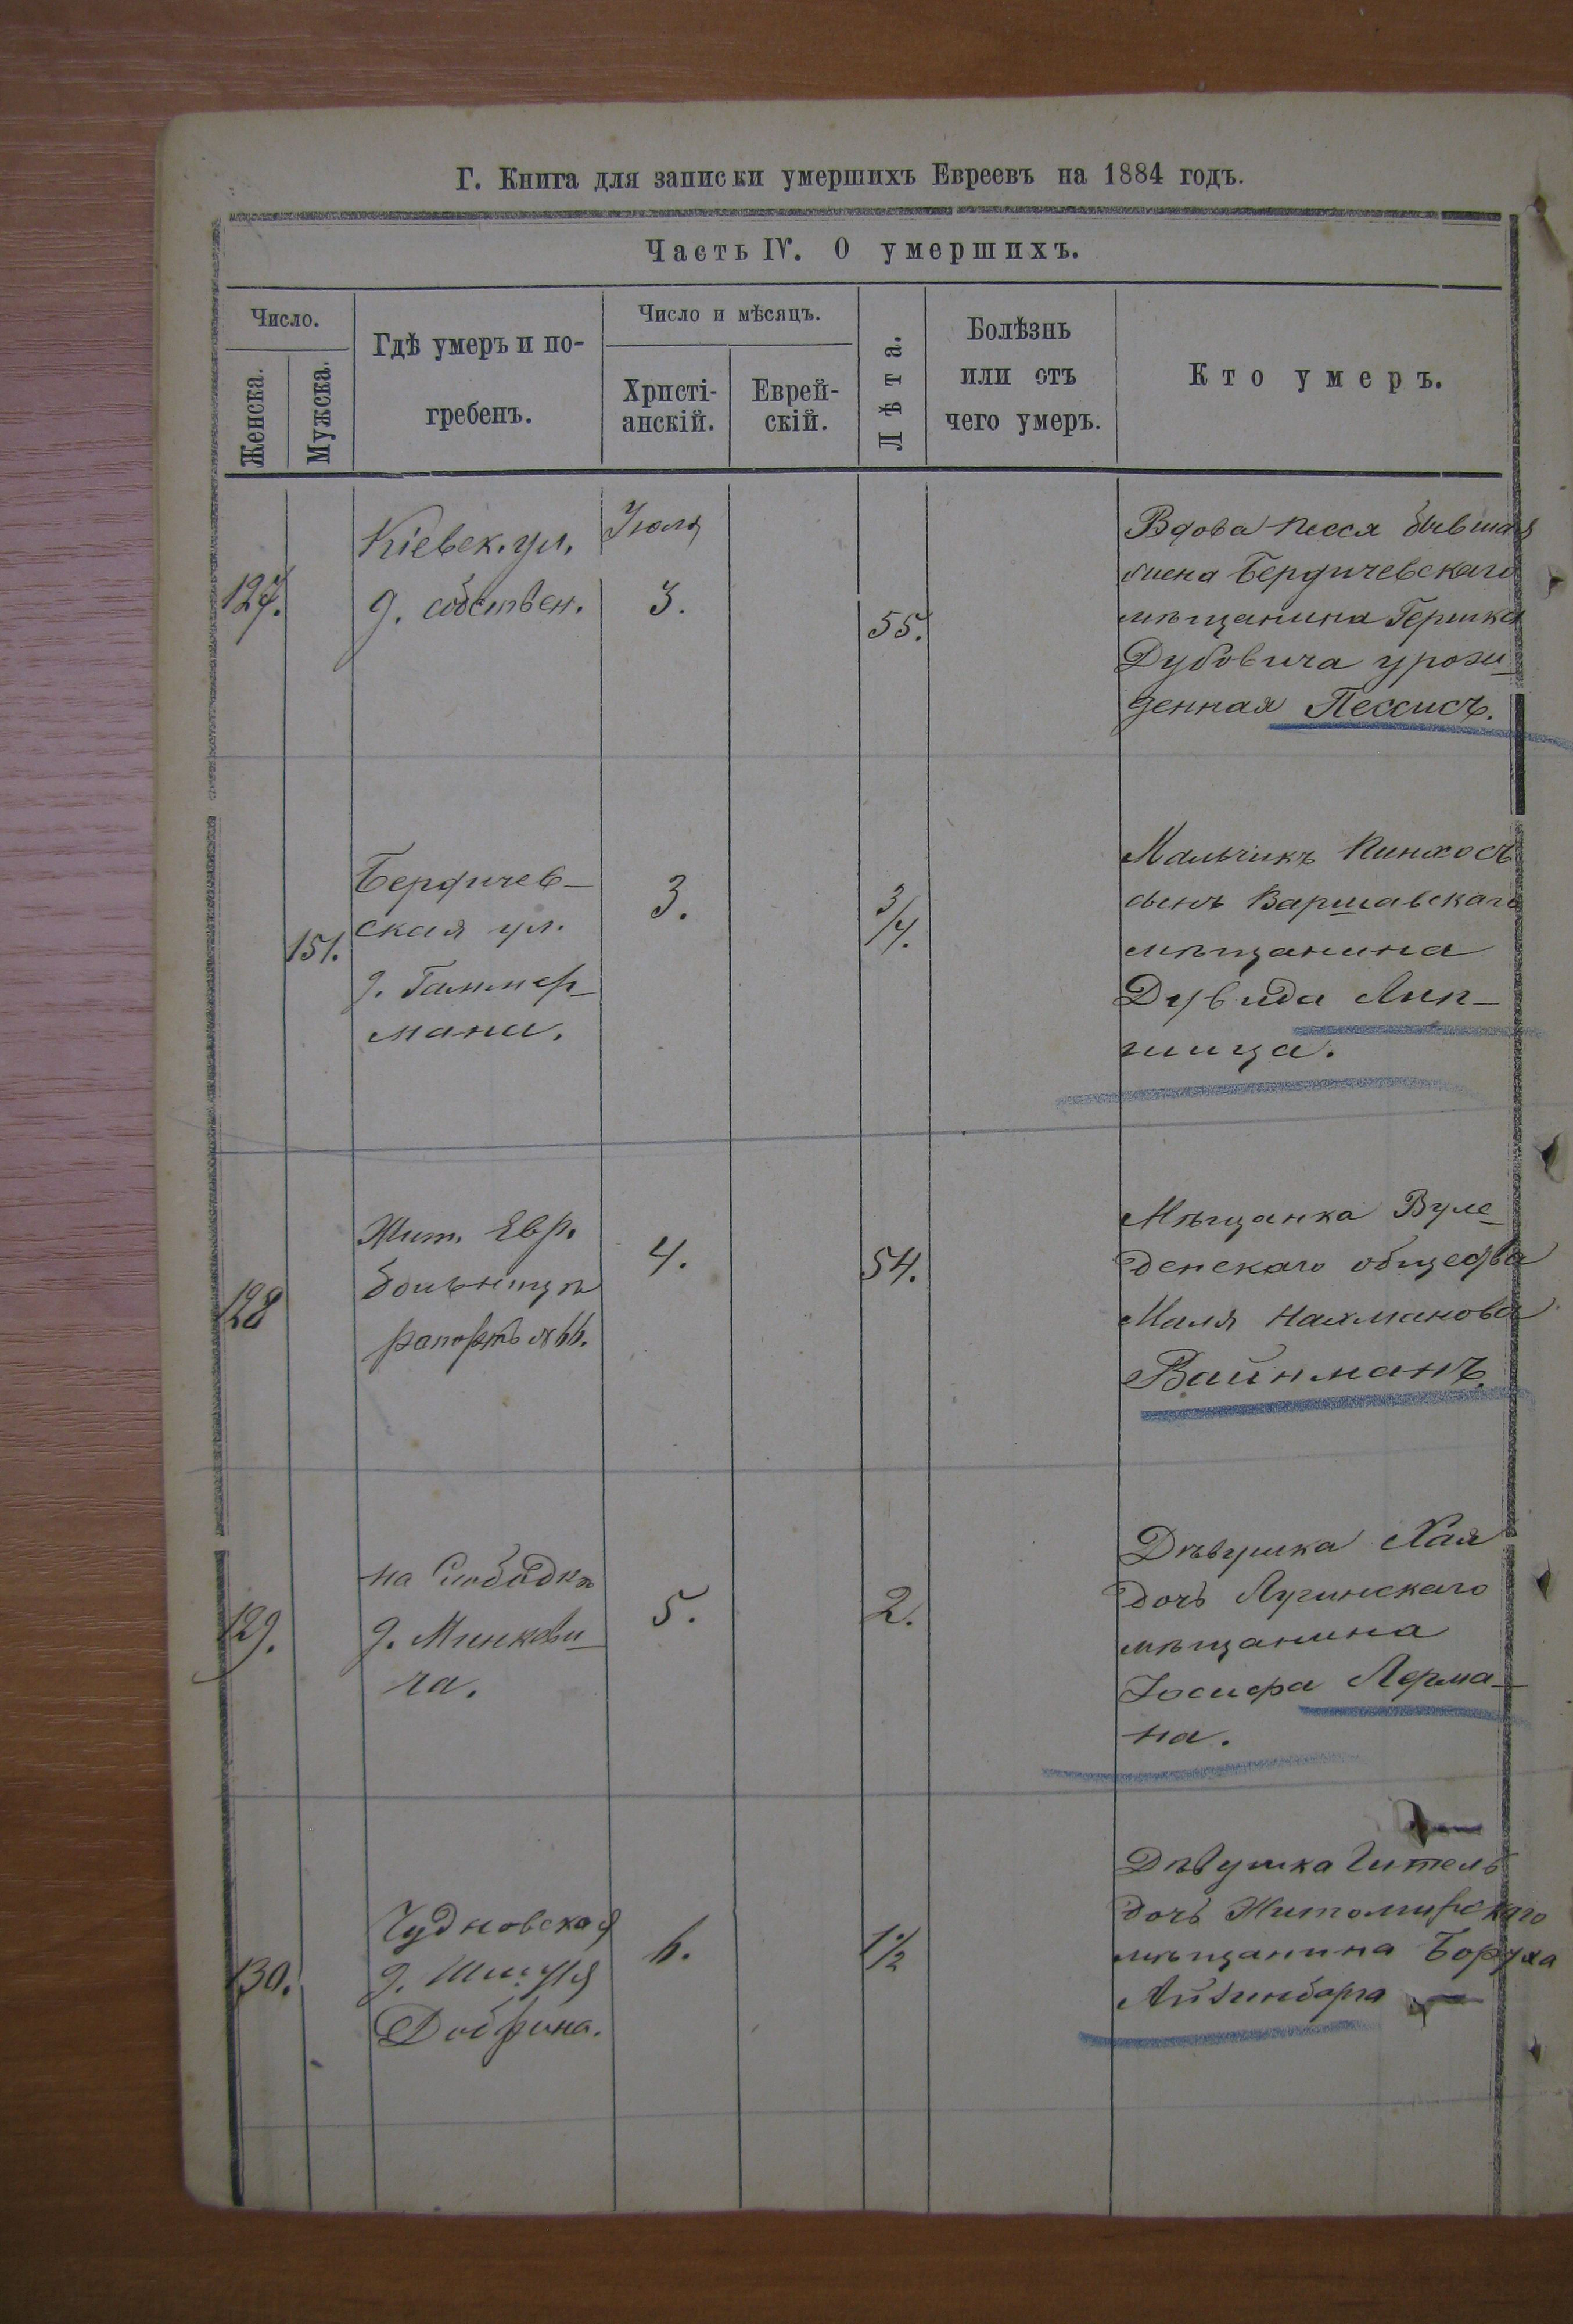 Г. Книга для записки умершихъ Евреевъ на 1884 годъ.
Часть IV. О умершихъ.
Число.
Женска.
Мужска.
Гдѣ умеръ и по-
гребенъ.
Число и мѣсяцъ.
Христі-
анскій.
Еврей-
скій.
Лѣта.
Болѣзнь
или отъ
чего умеръ.
Кто умеръ.
127.
Кіевск. ул.
д. собствен.
Іюля
3.
55.
Вдова Песся бывшая
жена Бердичевскаго
мѣщанина Гершка
Дубовича урож-
денная Пессисъ.
151.
Бердичев-
ская ул.
д. Гаммер-
мана.
3.
3/4.
Мальчикъ Пинхосъ
сынъ Варшавскаго
мѣщанина
Дувида Лип-
шица.
128
Жит. Евр.
больницѣ
рапортъ № 66.
4.
54.
Мѣщанка
денскаго общества
Маля Нахманова
Вайнманъ.
129.
на Слободкѣ
д. Минкови-
ча.
5.
2.
Дѣвушка Хая
дочь Лугинскаго
мѣщанина
Іосифа Лерма-
на.
130.
Чудновская
д.
Добрина.
6.
1 1/2
Дѣвушка Гитель
дочь Житомирскаго
мѣщанина Боруха
Айзинбарга